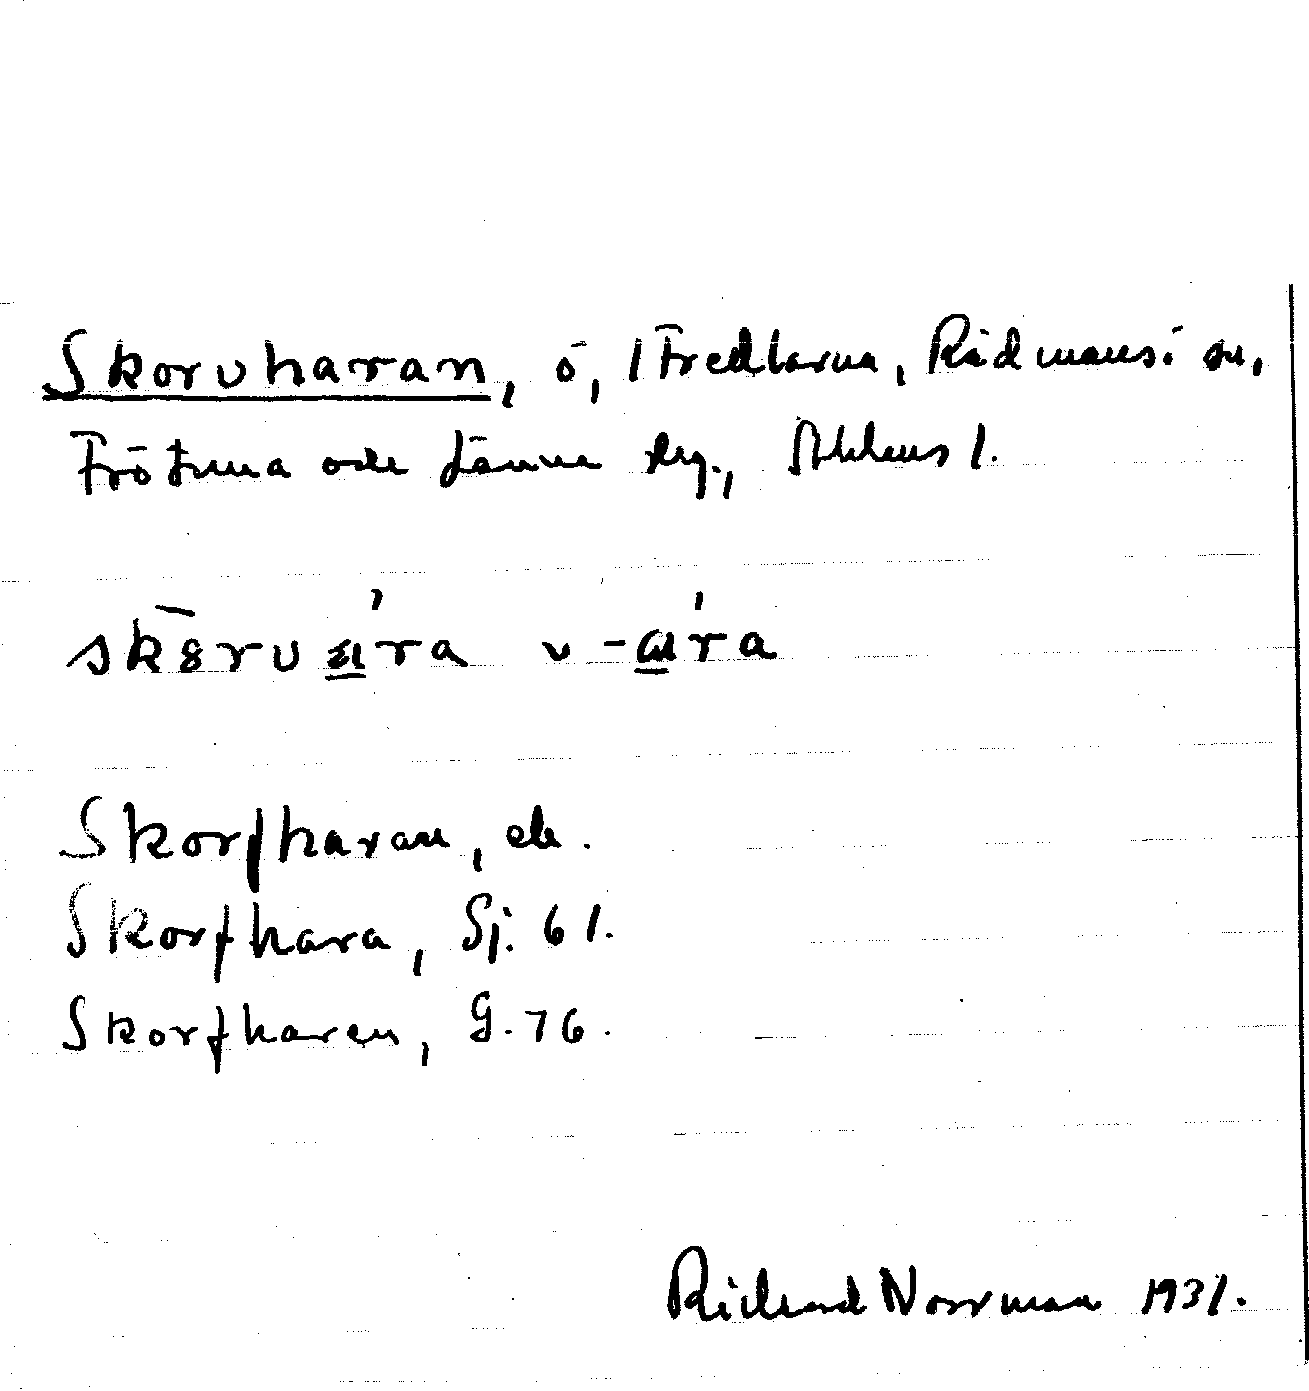 Skorvharan, ö, i Fredlarna, Rådmansö sn,
Frötuna och Länna skg., Sthlms l.
Skorfharan, ek.
Skorfhara, Sj. 61.
Skorfharen, G. 76.
Richard Norrman 1931.